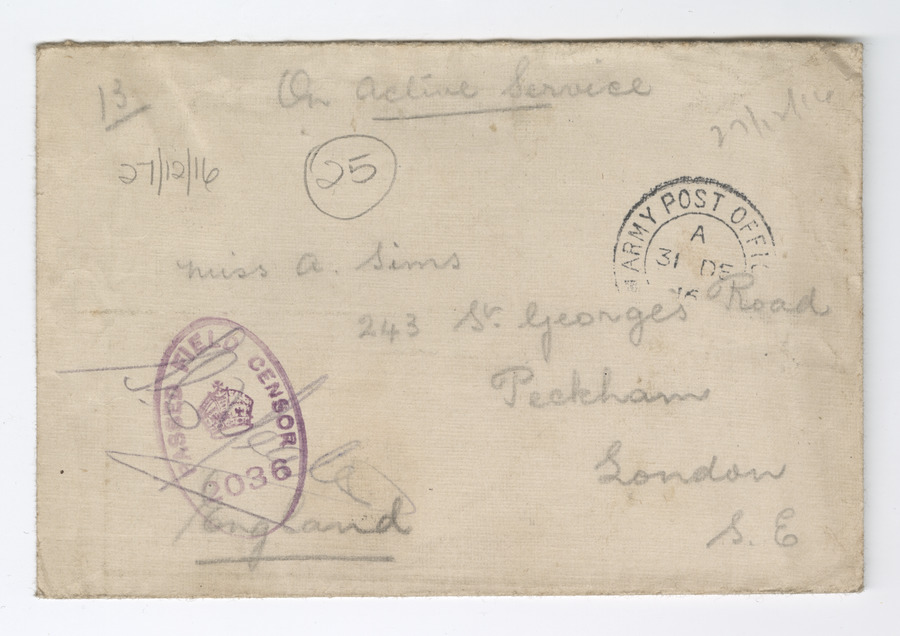 On Active Service
13
27/12/16
27/12/16
25
ARMY POST OFFIC
A
31 DE
16
Miss A. Sims
243 St. Georges Road
Peckham
London
S. E
England
PASSED FIELD CENSOR
2036